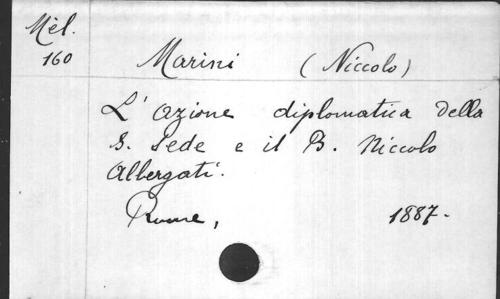 Mél.
160
Marini (Niccolo)
L'azione diplomatica della
S. Sede e il B. Niccolo
Albergati.
Rome, 1887.